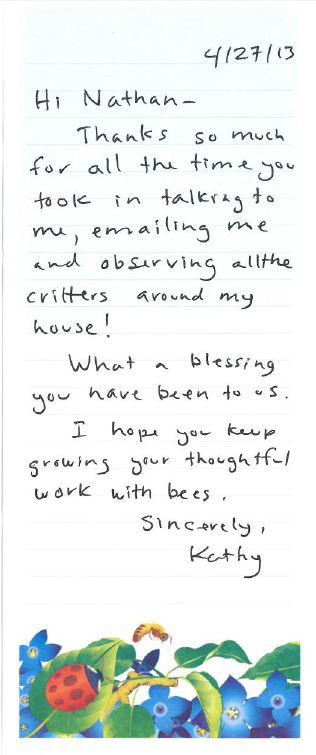 4/27/13
Hi Nathan-
Thanks so much
for all the time you
took in talking to
me, emailing me
and observing all the
critters around my
house!
What a blessing
you have been to us.
I hope you keep
growing your thoughtful
work with bees.
Sincerely,
Kathy